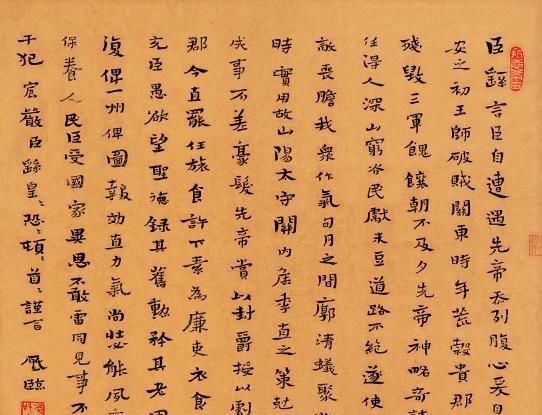 臣繇言臣自遭遇先帝忝列腹心爰自
安之初王師破賊關東時年荒穀貴郡
殘毀三軍餽饟朝不及夕先帝神略奇計
任得人深山窮谷民獻米豆道路不絕遂使
敵喪膽我眾作氣旬月之間廓清蟻聚
時實用故山陽太守關內侯季直之策剋
成事不差豪髮先帝賞以封爵授以劇
郡今直罷任旅食許下素為廉吏衣食
充臣愚欲望聖德錄其舊勳矜其老困
復俾一州俾圖報効直力氣尚壯必能夙
保養人民臣受國家異恩不敢雷同見事不
干犯宸嚴臣繇皇〻恐〻頓〻首〻謹言 臨